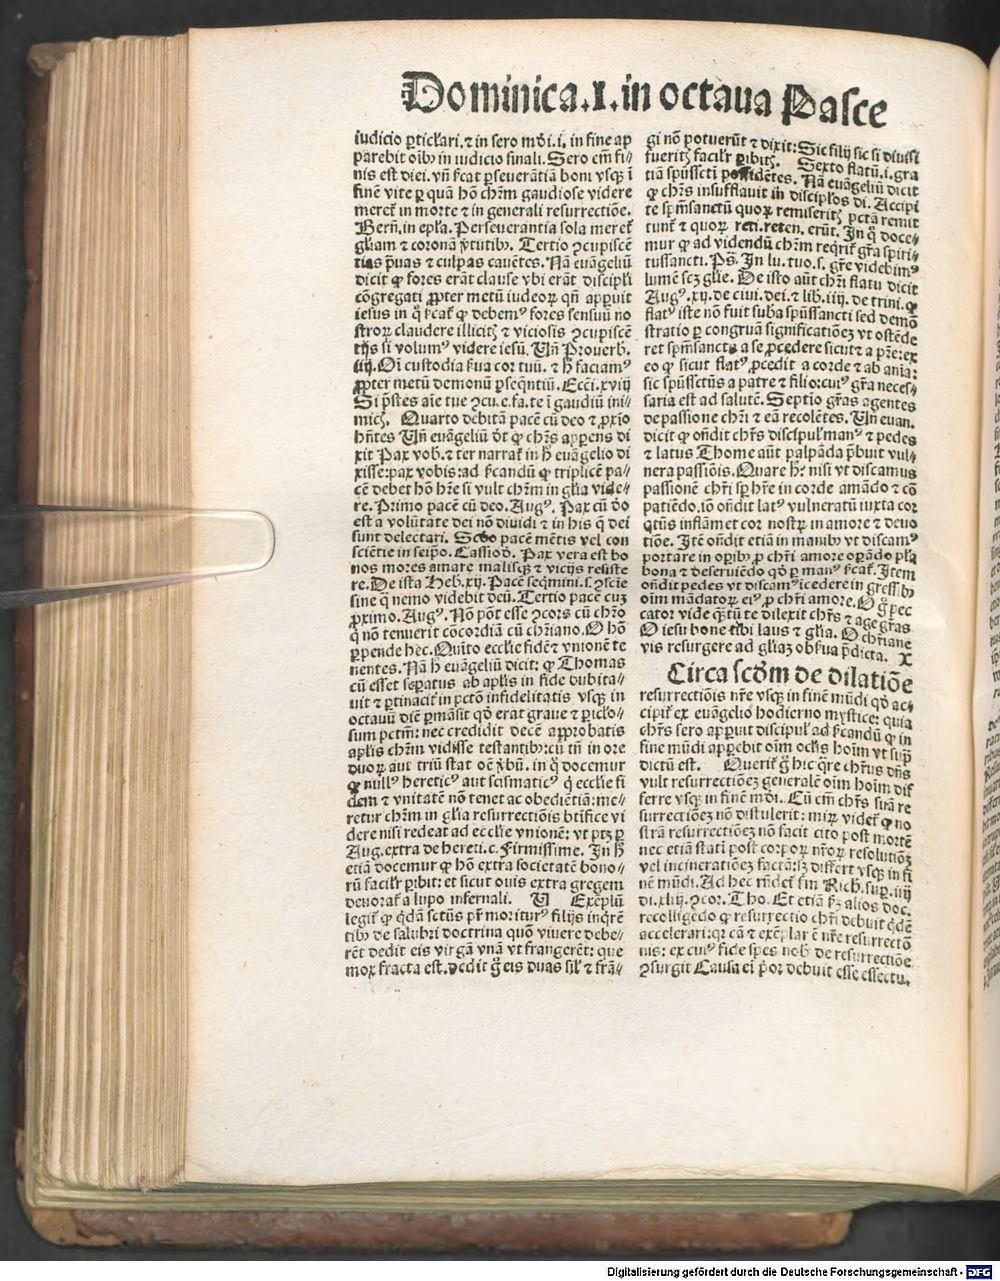 Dominica.I.in octaua Pasce
iudicio ꝑticľari.⁊ in sero mūdi.i. in fine ap
parebit oīb9 in iudicio finali. Sero em̄ fi/
nis est diei. vn̄ ſcat ꝑseuerātiā boni vsqꝫ ī
finē vite ꝑ quā hō chr̄m gaudiose videre
meret̄ in morte ⁊ in generali resurrectiōe.
Bern̄. in epl̄a. Perseuerantia sola meret̄
gl̄iam ⁊ coronā v̄tutib9. Tertio ꝯcupiscē
tias p̄uas ⁊ culpas cauētes. Nā euāgeliū
dicit ꝙ fores erāt clause vbi erāt discipl̄i
cōgregati ꝓpter metū iudeoꝝ qn̄ apparuit
iesus in q̄ ſcat̄ ꝙ debem9 fores sensuū no
stroꝝ claudere illicit ⁊ viciosis ꝯcupiscē
tijs si volum9 videre iesū. Vn̄ Prouerb.
iiij. Oī custodia ẜua cor tuū. ⁊ h̄ faciam9
ꝓpter metū demonū ꝑseq̄ntiū. Ecci. xviij
Si p̄stes aīe tue ꝯcu.e.fa.te ī gaudiū ini/
mic. Quarto debitā pacē cū deo ⁊ ꝓxīo
hn̄tes Vn̄ euāgeliū d̄t ꝙ chr̄s appens di
xit Pax vob.⁊ ter narrat̄ in h̄ euāgelio di
xisse:pax vobis:ad ſcandū ꝙ triplicē pa/
cē debet hō hr̄e si vult chr̄m in gl̄ia vide/
re. Primo pacē cū deo. Aug9. Pax cū d̄o
est a volūtate dei nō diuidi ⁊ in his q̄ dei
sunt delectari. Scd̄o pacē mētis vel con
sciētie in seip̄o. Cassiod̄. Pax vera est bo
nos mores amare malisqꝫ ⁊ vicijs resiste
re. De ista Heb.xij. Pacē seq̄mini.⁊ ꝯscie
sine q̄ nemo videbit deū. Tertio pacē cuꝫ
ꝓximo. Aug9. Nō pōt esse ꝯcors cū chr̄o
q̄ nō tenuerit cōcordiā cū chr̄iano. O hō
ꝑpende hec. Quīto ecclie fidē ⁊ vnionē te
nentes. Nā h̄ euāgeliū dicit: ꝙ Thomas
cū esset seꝑatus ab apl̄is in fide dubita/
uit ⁊ ꝑtinacit̄ in pctō infidelitatis vsqꝫ in
octauū diē ꝑmāsit qd̄ erat graue ⁊ ꝑiclo/
sum pctm̄: nec credidit decē approbatis
apl̄is chr̄m vidisse testantib9: cū tn̄ in ore
duoꝝ aut triū stat oē v̄bū. in q̄ docemur
ꝙ null9 heretic9 aut scismatic9 q̄ ecclie fi
dem ⁊ vnitatē nō tenet ac obediētiā: me/
retur chr̄m in gl̄ia resurrectiōis btifice vi
dere nisi redeat ad ecclie vnionē: vt ptꝫ ꝑ
Aug. extra de hereti.c. Firmissime. In h̄
etiā docemur ꝙ hō extra societatē bono/
rū facil̄r ꝑibit: et sicut ouis extra gregem
deuorat̄ a lupo infernali. V Exēplū
legit̄ ꝙ q̄dā sctūs pr̄ moritur9 filijs inq̄rē
tib9 de salubri doctrina quō viuere debe/
rēt dedit eis virgā vnā vt frangerēt: que
mox fracta est. dedit ḡ eis duas sil̄ ⁊ frā/
gi nō potuerūt ⁊ dixit: Sic filij sic si diuisi
fuerit facil̄r ꝑibit. Sexto flatū.i.gra
tiā sp̄ūssctī possidētes. Nā euāgeliū dicit
ꝙ chr̄s insufflauit in discipl̄os di. Accipi
te sp̄m sanctū quoꝝ remiserit pctā remit
tunt̄ ⁊ quoꝝ reti.reten. erūt. In q̄ doce/
mur ꝙ ad videndū chr̄m reqrit̄ gr̄a spiri/
tussancti. Ps̄. In lu. tuo.s. gr̄e videbim9
lumē scꝫ gl̄ie. De isto aūt chr̄i flatu dicit
Aug9. xij. de ciui. dei. ⁊ lib. iiij. de trini. ꝙ
flat9 iste nō fuit subā sp̄ūssancti sed demō
stratio ꝑ congruā significatiōeꝫ vt ostēde
ret sp̄m sanctū a se ꝓcedere sicut ⁊ a pr̄e: ex
eo ꝙ sicut flat9 ꝓcedit a corde ⁊ ab aīa:
sic sp̄ūssctūs a patre ⁊ filio: cui9 gr̄a neces/
saria est ad salutē. Septio gr̄as agentes
de passione chr̄i ⁊ eā recolētes. Vn̄ euan.
dicit ꝙ on̄dit chr̄s discipul̄ man9 ⁊ pedes
⁊ latus Thome aūt palpādā p̄buit vul/
nera passiōis. Quare h: nisi vt discamus
passionē chr̄i sp̄ hr̄e in corde amādo ⁊ cō
patiēdo. iō on̄dit lat9 vulneratū iuxta cor
qtūs inflam̄et cor nostꝝ in amore ⁊ deuo
tiōe. Itē on̄dit etiā in manib9 vt discam9
portare in oꝑib9 ꝓ chr̄i amore oꝑādo pl̄a
bona ⁊ deseruiēdo qd̄ ꝑ man9 ſcat̄. Item
on̄dit pedes vt discam9 īcedere in gressib9
oīm mādatoꝝ ei9 ꝓ chr̄i amore. O ḡ pec
cator vide q̄tū te dilexit chr̄s ⁊ age gr̄as
O iesu bone tibi laus ⁊ gl̄ia. O chr̄iane
vis resurgere ad gl̄iaꝫ obẜua p̄dicta. X
Circa scd̄m de dilatiōe
resurrectiōis nr̄e vsqꝫ in finē mūdi qd̄ ac/
cipit̄ ex euāgelio hodierno mystice: quia
chr̄s sero apparuit discipul̄ ad ſcandū ꝙ in
fine mūdi apꝑebit oīm oclis hoīm vt sup̄
dictū est. Querit̄ ḡ hic q̄re chr̄us dn̄s
vult resurrectiōeꝫ generalē oīm hoīm dif
ferre vsqꝫ in finē mūdi. Cū em̄ chr̄s suā re
surrectiōeꝫ nō distulerit: miꝝ videt̄ ꝙ no
strā resurrectiōeꝫ nō facit cito post mortē
nec etiā statī post corpoꝝ nr̄oꝝ resolutiōꝫ
vel incineratiōeꝫ factā: sꝫ differt vsqꝫ in fi
nē mūdi. Ad hec rn̄det̄ ẜm Rich. sup. iiij
di. xliij. ⁊ cor. Tho. Et etiā ẜꝫ alios doc.
recolligēdo ꝙ resurrectio chr̄i debuit q̄dē
accelerari: qꝛ cā ⁊ exēplar ē nr̄e resurrectō
nis: ex cui9 fide spes nob̄ de resurrectiōe
ꝯsurgit Causa ei p̄or debuit esse effectu.